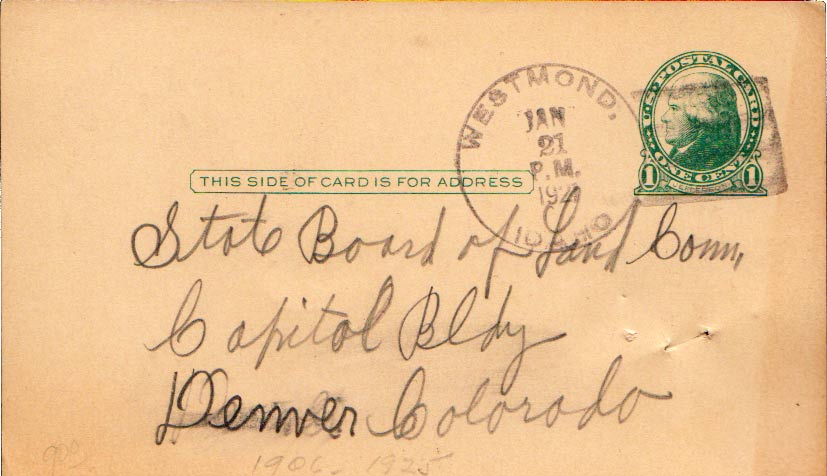 WESTMOND,
JAN
21
P.M.
192
IDAHO
U.S. POSTAL CARD
ONE CENT
1 JEFFERSON 1
THIS SIDE OF CARD IS FOR ADDRESS
State Board of Land Comm,
Capitol Bldg
Denver Colorado
1906 - 1925